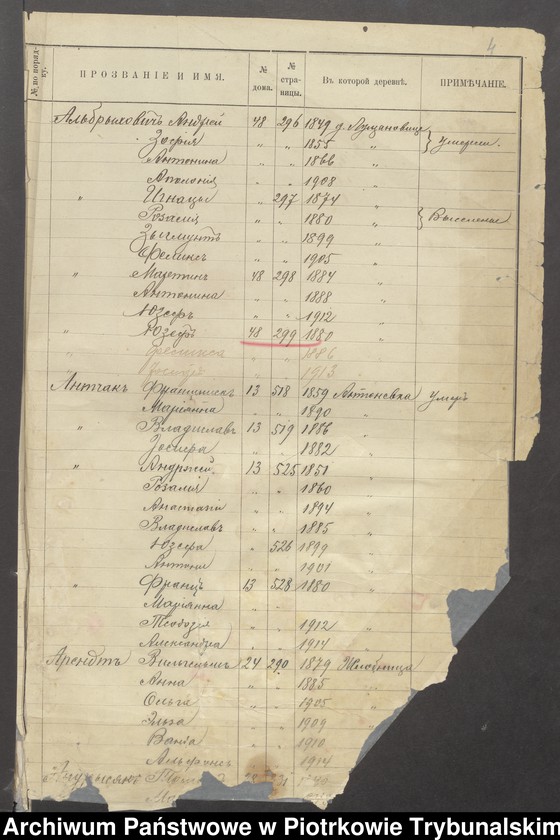 4
№ по порядку.
ПРОЗВАНІЕ И ИМЯ.
№ дома.
№ страницы.
Въ которой деревнѣ.
ПРИМѢЧАНІЕ.
Альбрыховичъ Андрей 48 296 1849 д. Лузановице
Зофія " " 1855 " Умерли.
Антонина " " 1866 "
Аполонія " " 1908 "
" Игнацы " 297 1874 "
Розалія " " 1880 " Выселеные
Зыгмунтъ " " 1899 "
Феликсъ " " 1905 "
" Мартинъ 48 298 1884 "
Антонина " " 1888 "
Юзефъ " " 1912 "
" Юзефъ 48 299 1880 "
" " 1886
" " 1913
Антчакъ Францишекъ 13 518 1859 Антоневка Умеръ
Маріянна " " 1890 "
" Владиславъ 13 519 1886 "
Юзефа " " 1882 "
" Андржей 13 525 1851 "
Розалія " " 1860 "
Анастазія " " 1894 "
Владиславъ " " 1885 "
Юзефа " 526 1899 "
Антони " " 1901 "
" Францъ 13 528 1880 "
Маріянна " "
Теодозя " " 1912 "
Александра " " 1914 "
Арендтъ Вильгельмъ 24 290 1879 Жлобница
Анна " " 1885 "
Ольга " " 1905 "
Эльза " " 1909 "
Ванда " " 1910
Альфонсъ " " 1914
Archiwum Państwowe w Piotrkowie Trybunalskim